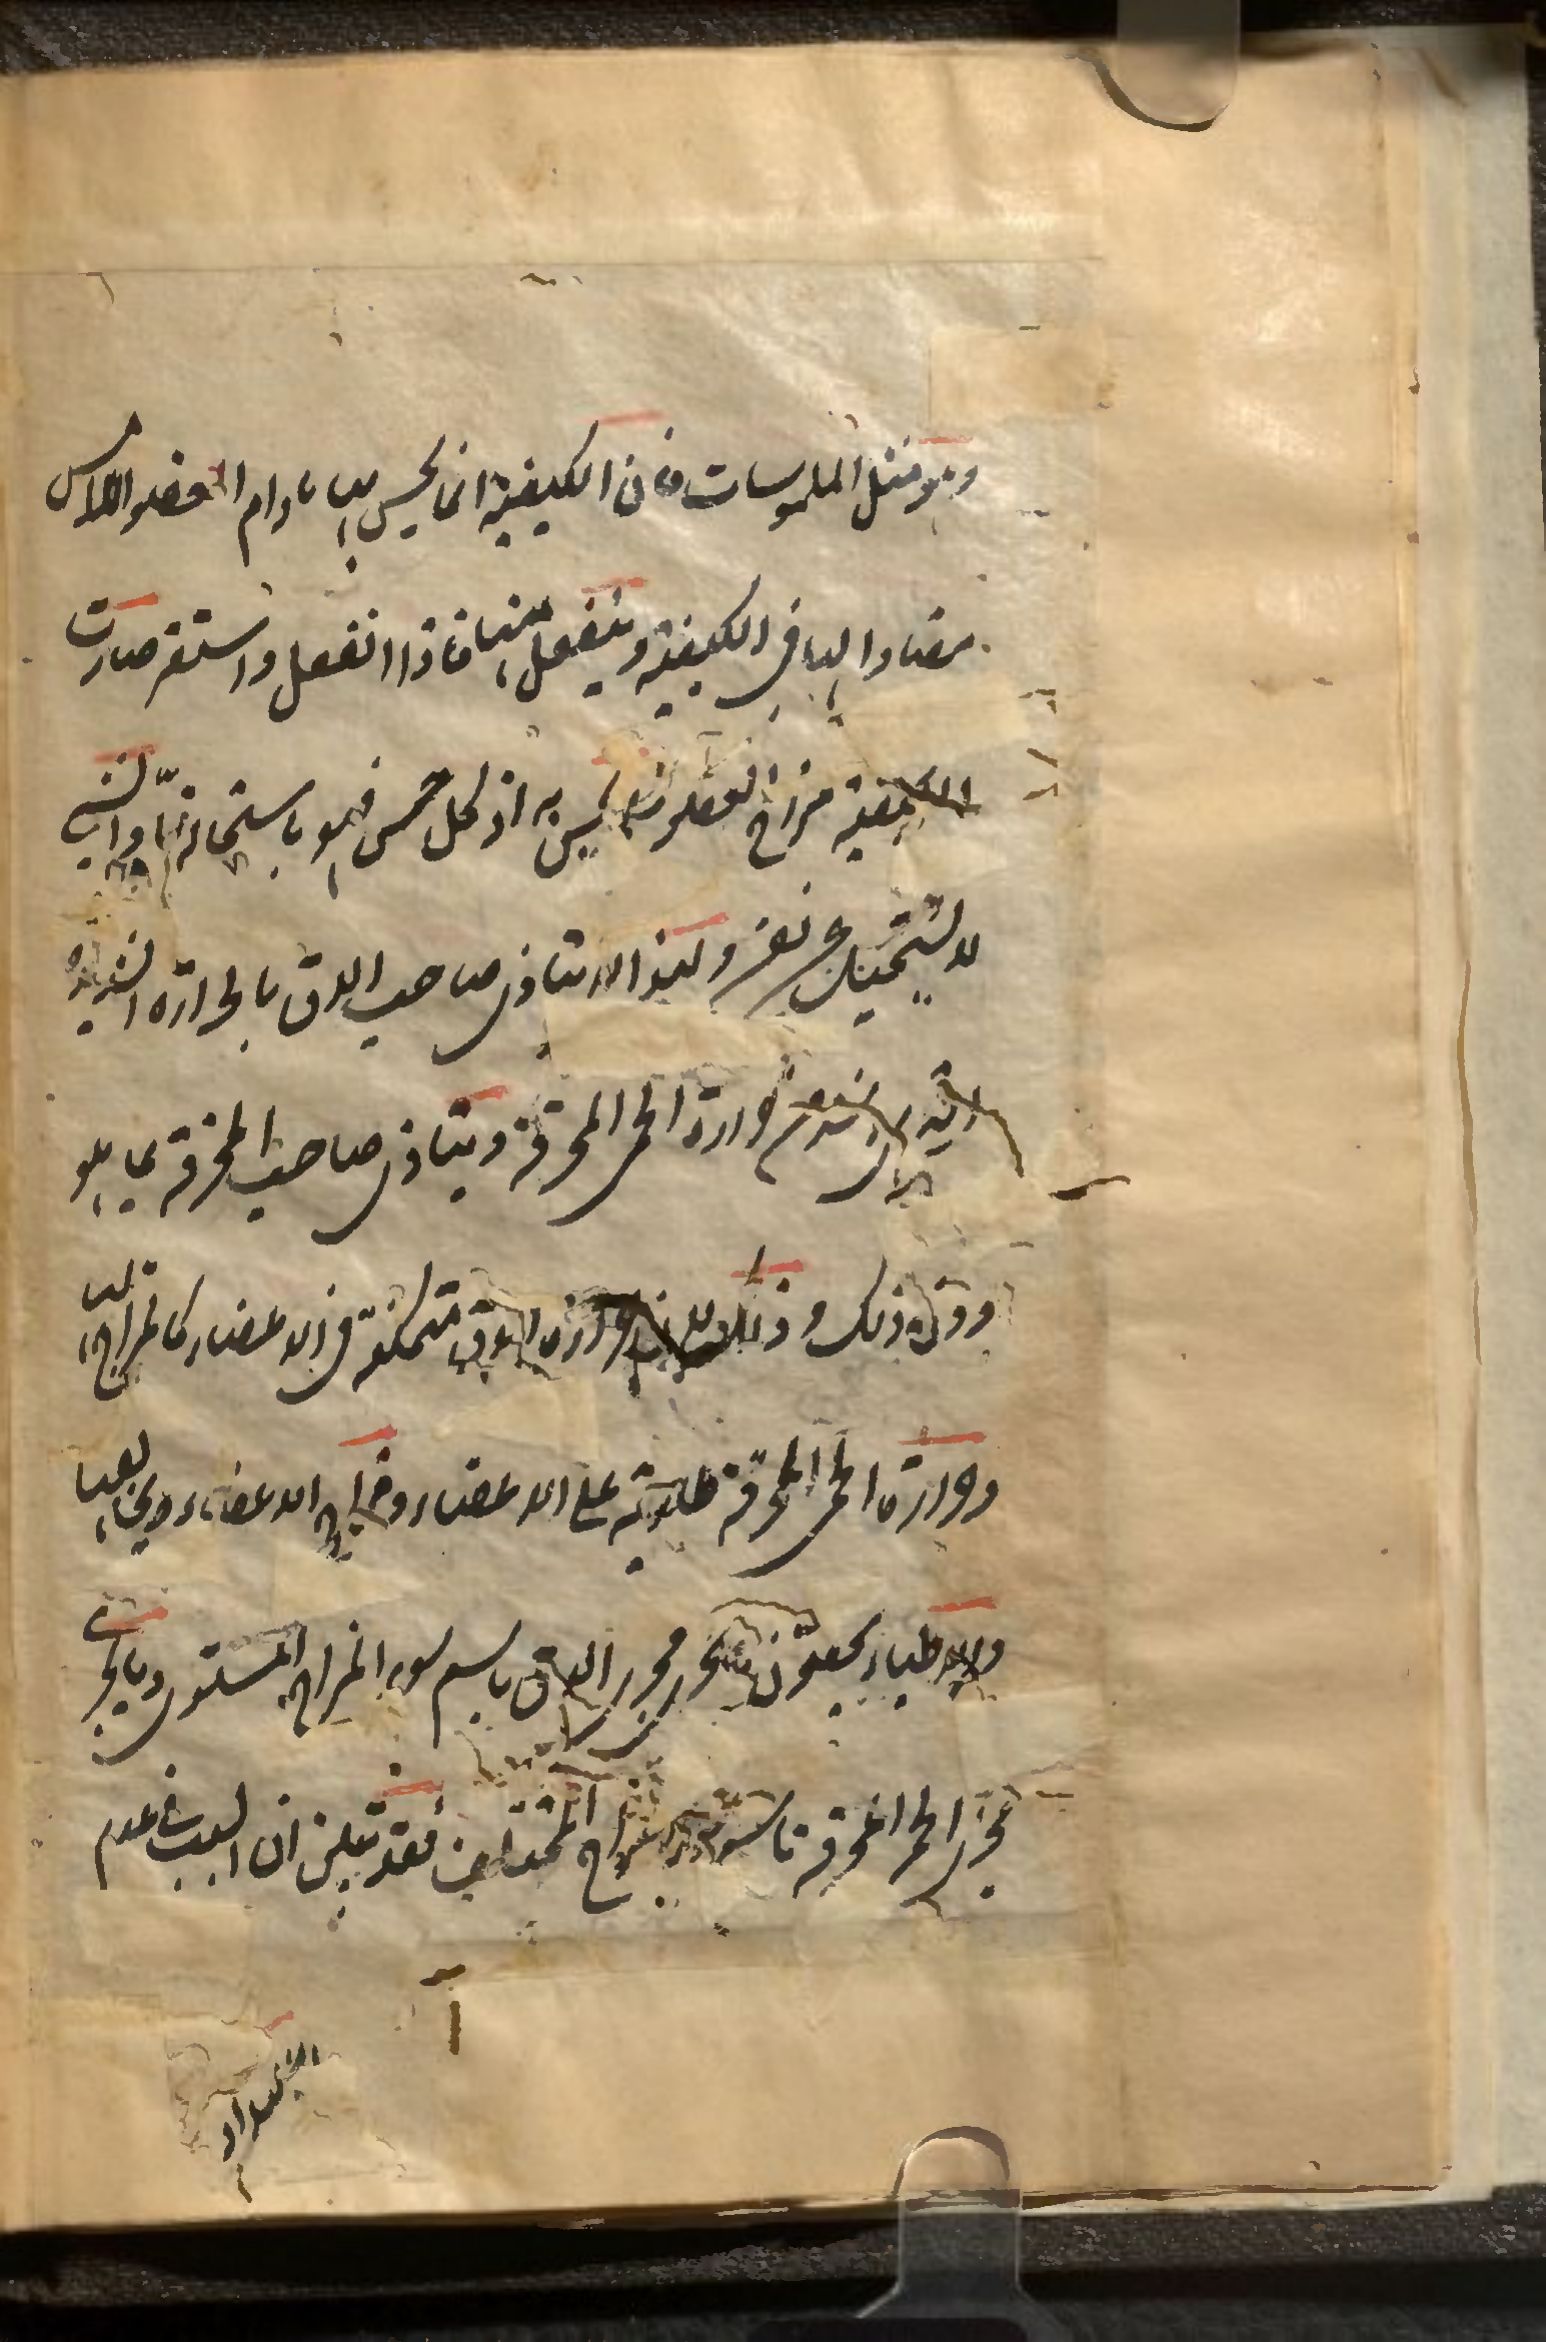 وهو مثل الملموسات فان الكيفية انما يحس بها ما دام العضو اللامس
مضادا لها في الكيفية وينفعل عنها فاذا انفعل واستقر صارت
الكيفية مزاج العضو فلم يحس به اذ كل حس فهو باستحالة ما والشيء
لا يستحيل عن نفسه ولهذا لا يتاذى صاحب الدق بالحرارة الشديدة
التي هي اشد من حرارة الحمى المحرقة ويتاذى صاحب المحرقة بما هو
دون ذلك وذلك لان حرارة الدق متمكنة في الاعضاء كالمزاج لها
وحرارة الحمى المحرقة طارية على الاعضاء ومزاج الاعضاء يخالفها
والاطباء يخصون محرور الدق باسم سوء المزاج المستوي وبالحرى
محرور الحمى المحرقة باسم سوء المزاج المختلف فقد تبين ان السبب في عدم